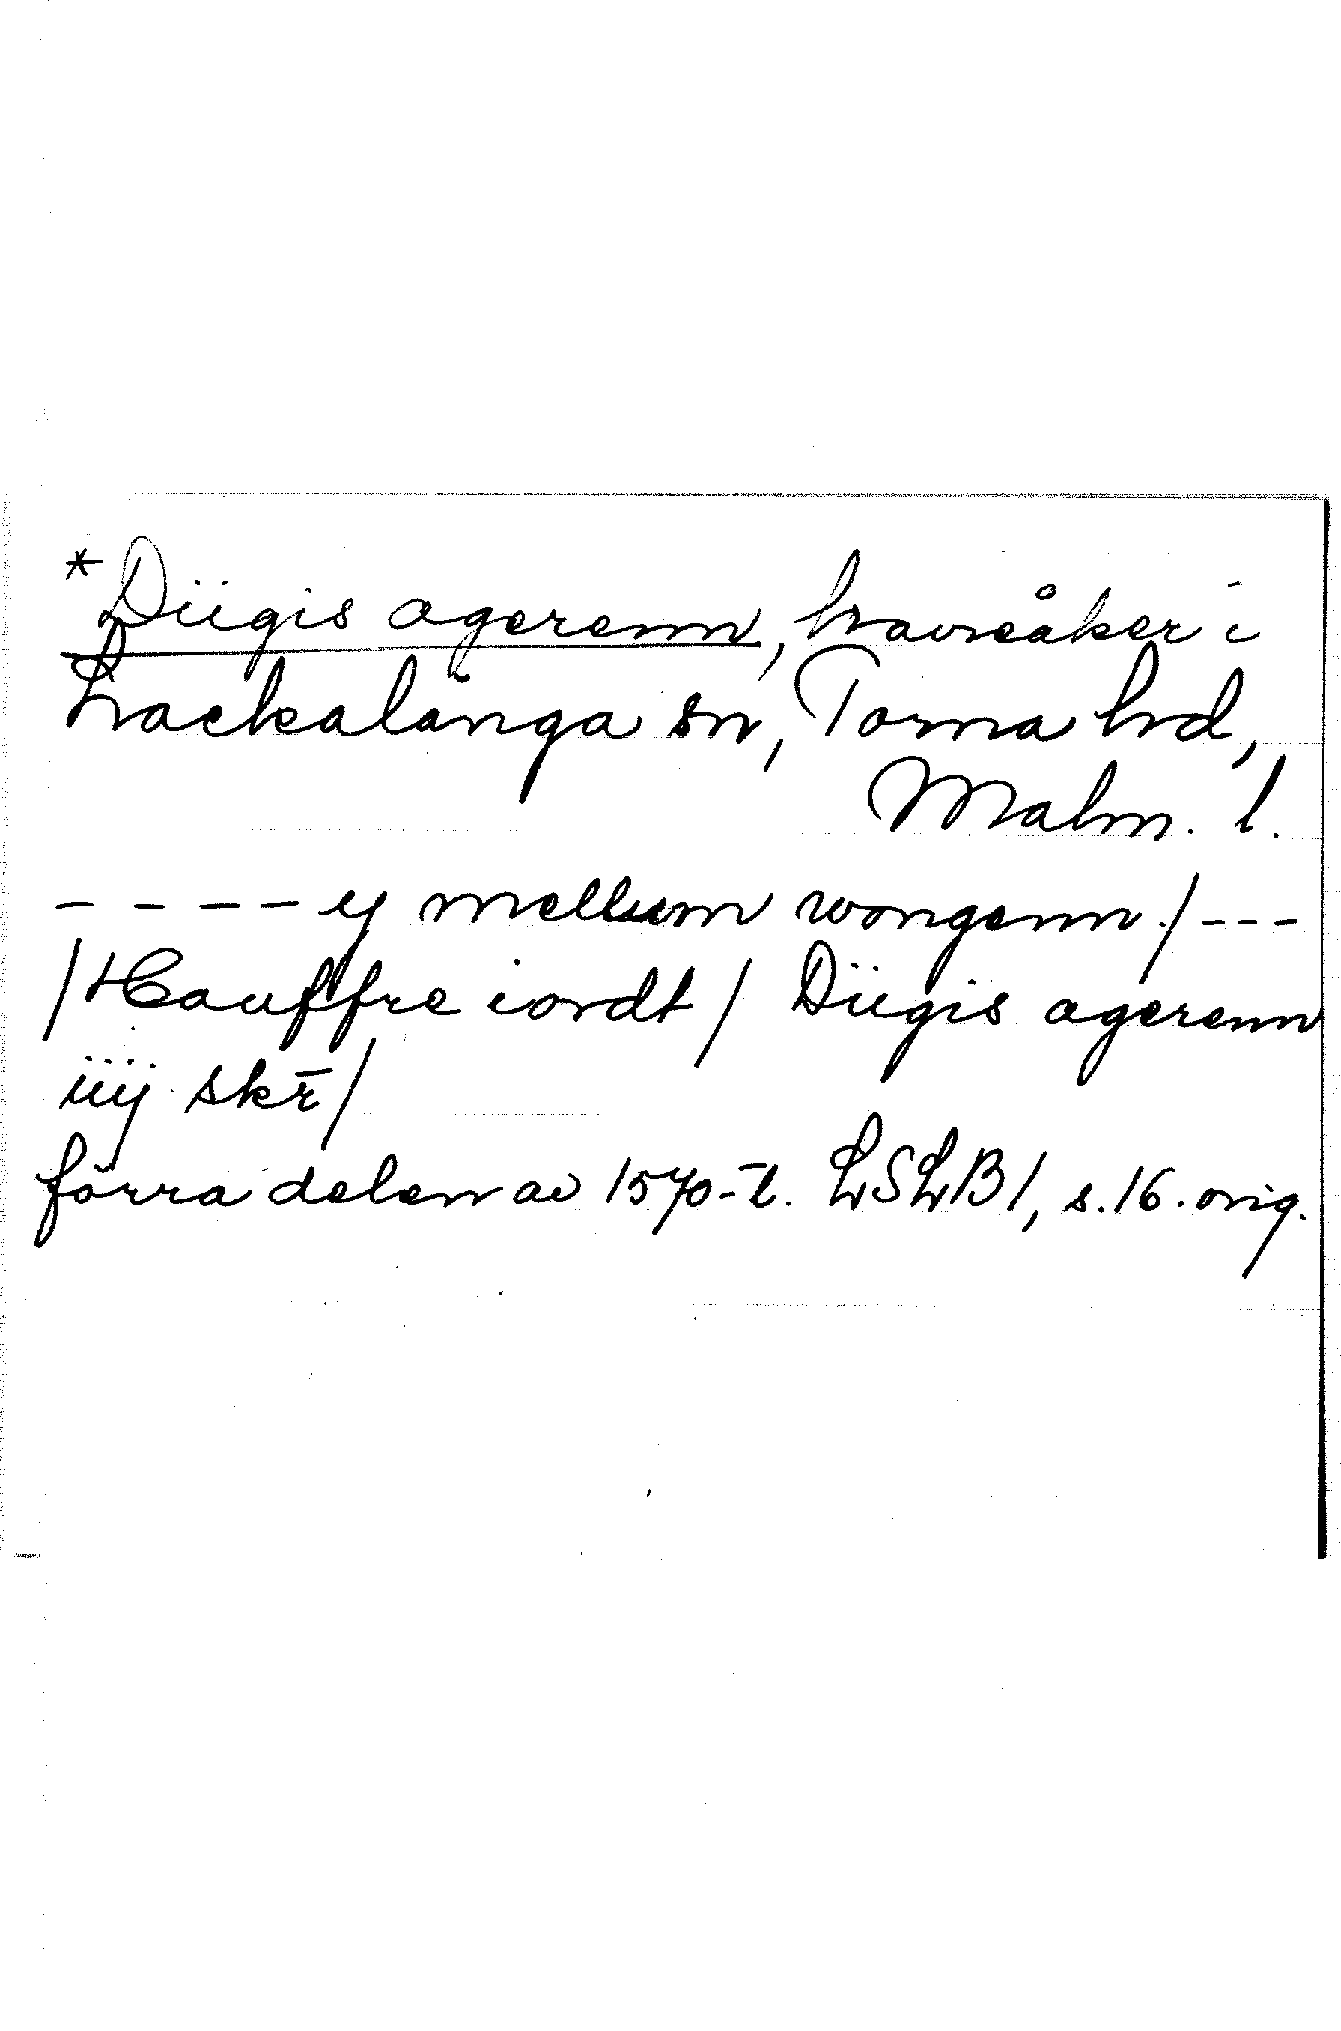 *Diigis agerenn, havreåker i
Lackalänga sn, Torna hd,
Malm. l.
- - - - ij mellum wongenn / - - -
/ Hauffre iordt / Diigis agerenn
iiij skr̄ /
förra delen av 1570-t. LSLB1, s. 16. orig.